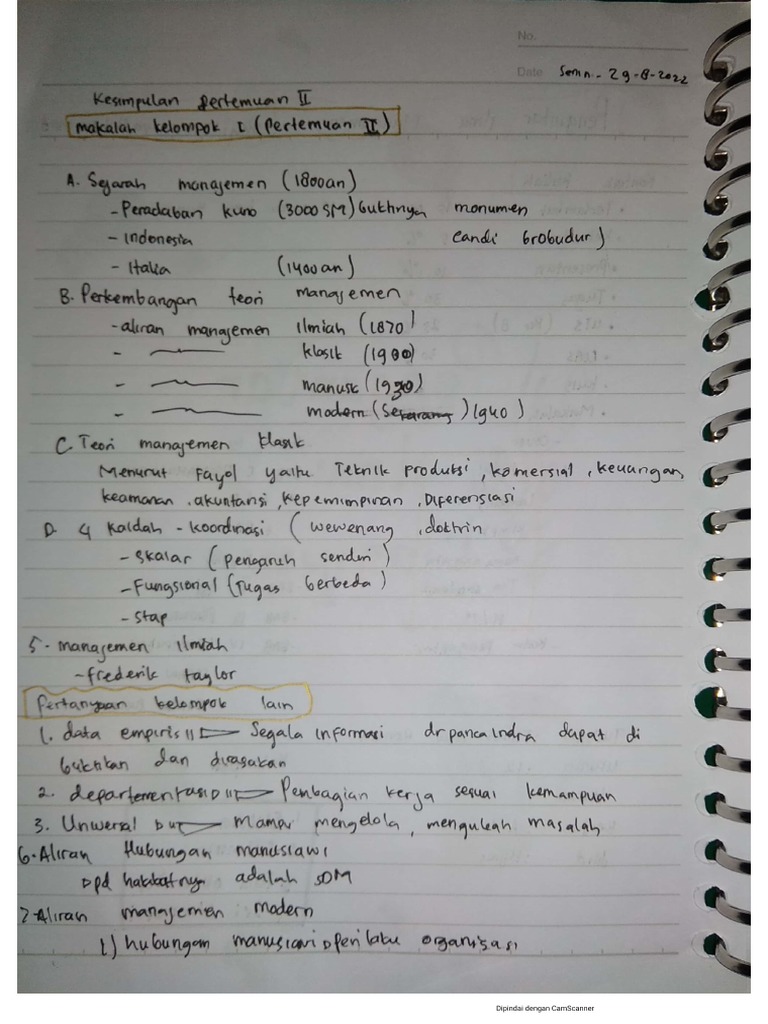 No.
Date Senin - 29-8-2022
Kesimpulan Pertemuan II
makalah kelompok I (Pertemuan II)
A. Sejarah manajemen (1800an)
- Peradaban kuno (3000 SM) buktinya monumen
- Indonesia candi brobudur)
- Italia (1400an)
B. Perkembangan teori manajemen
- aliran manajemen ilmiah (1870)
- klasik (1900)
- manusi (1930)
- modern (Sekarang) 1940)
C. Teori manajemen klasik
Menurut Fayol yaitu Teknik produksi, komersial, keuangan,
keamanan, akuntansi, kepemimpinan, Diferensiasi
D. 4 Kaidah - Koordinasi (wewenang, doktrin
- Skalar (pengaruh sendiri)
- Fungsional (Tugas berbeda)
- Stap
5. manajemen Ilmiah
- frederik taylor
Pertanyaan kelompok lain
1. data empiris Segala informasi dr panca indra dapat di
buktikan dan dirasakan
2. departementasi Pembagian kerja sesuai kemampuan
3. Universal Mampu mengelola, masalah
6. Aliran Hubungan manusiawi
pd hakikatnya adalah SDM
7. Aliran manajemen modern
1) hubungan manusiawi perilaku organisasi
Dipindai dengan CamScanner